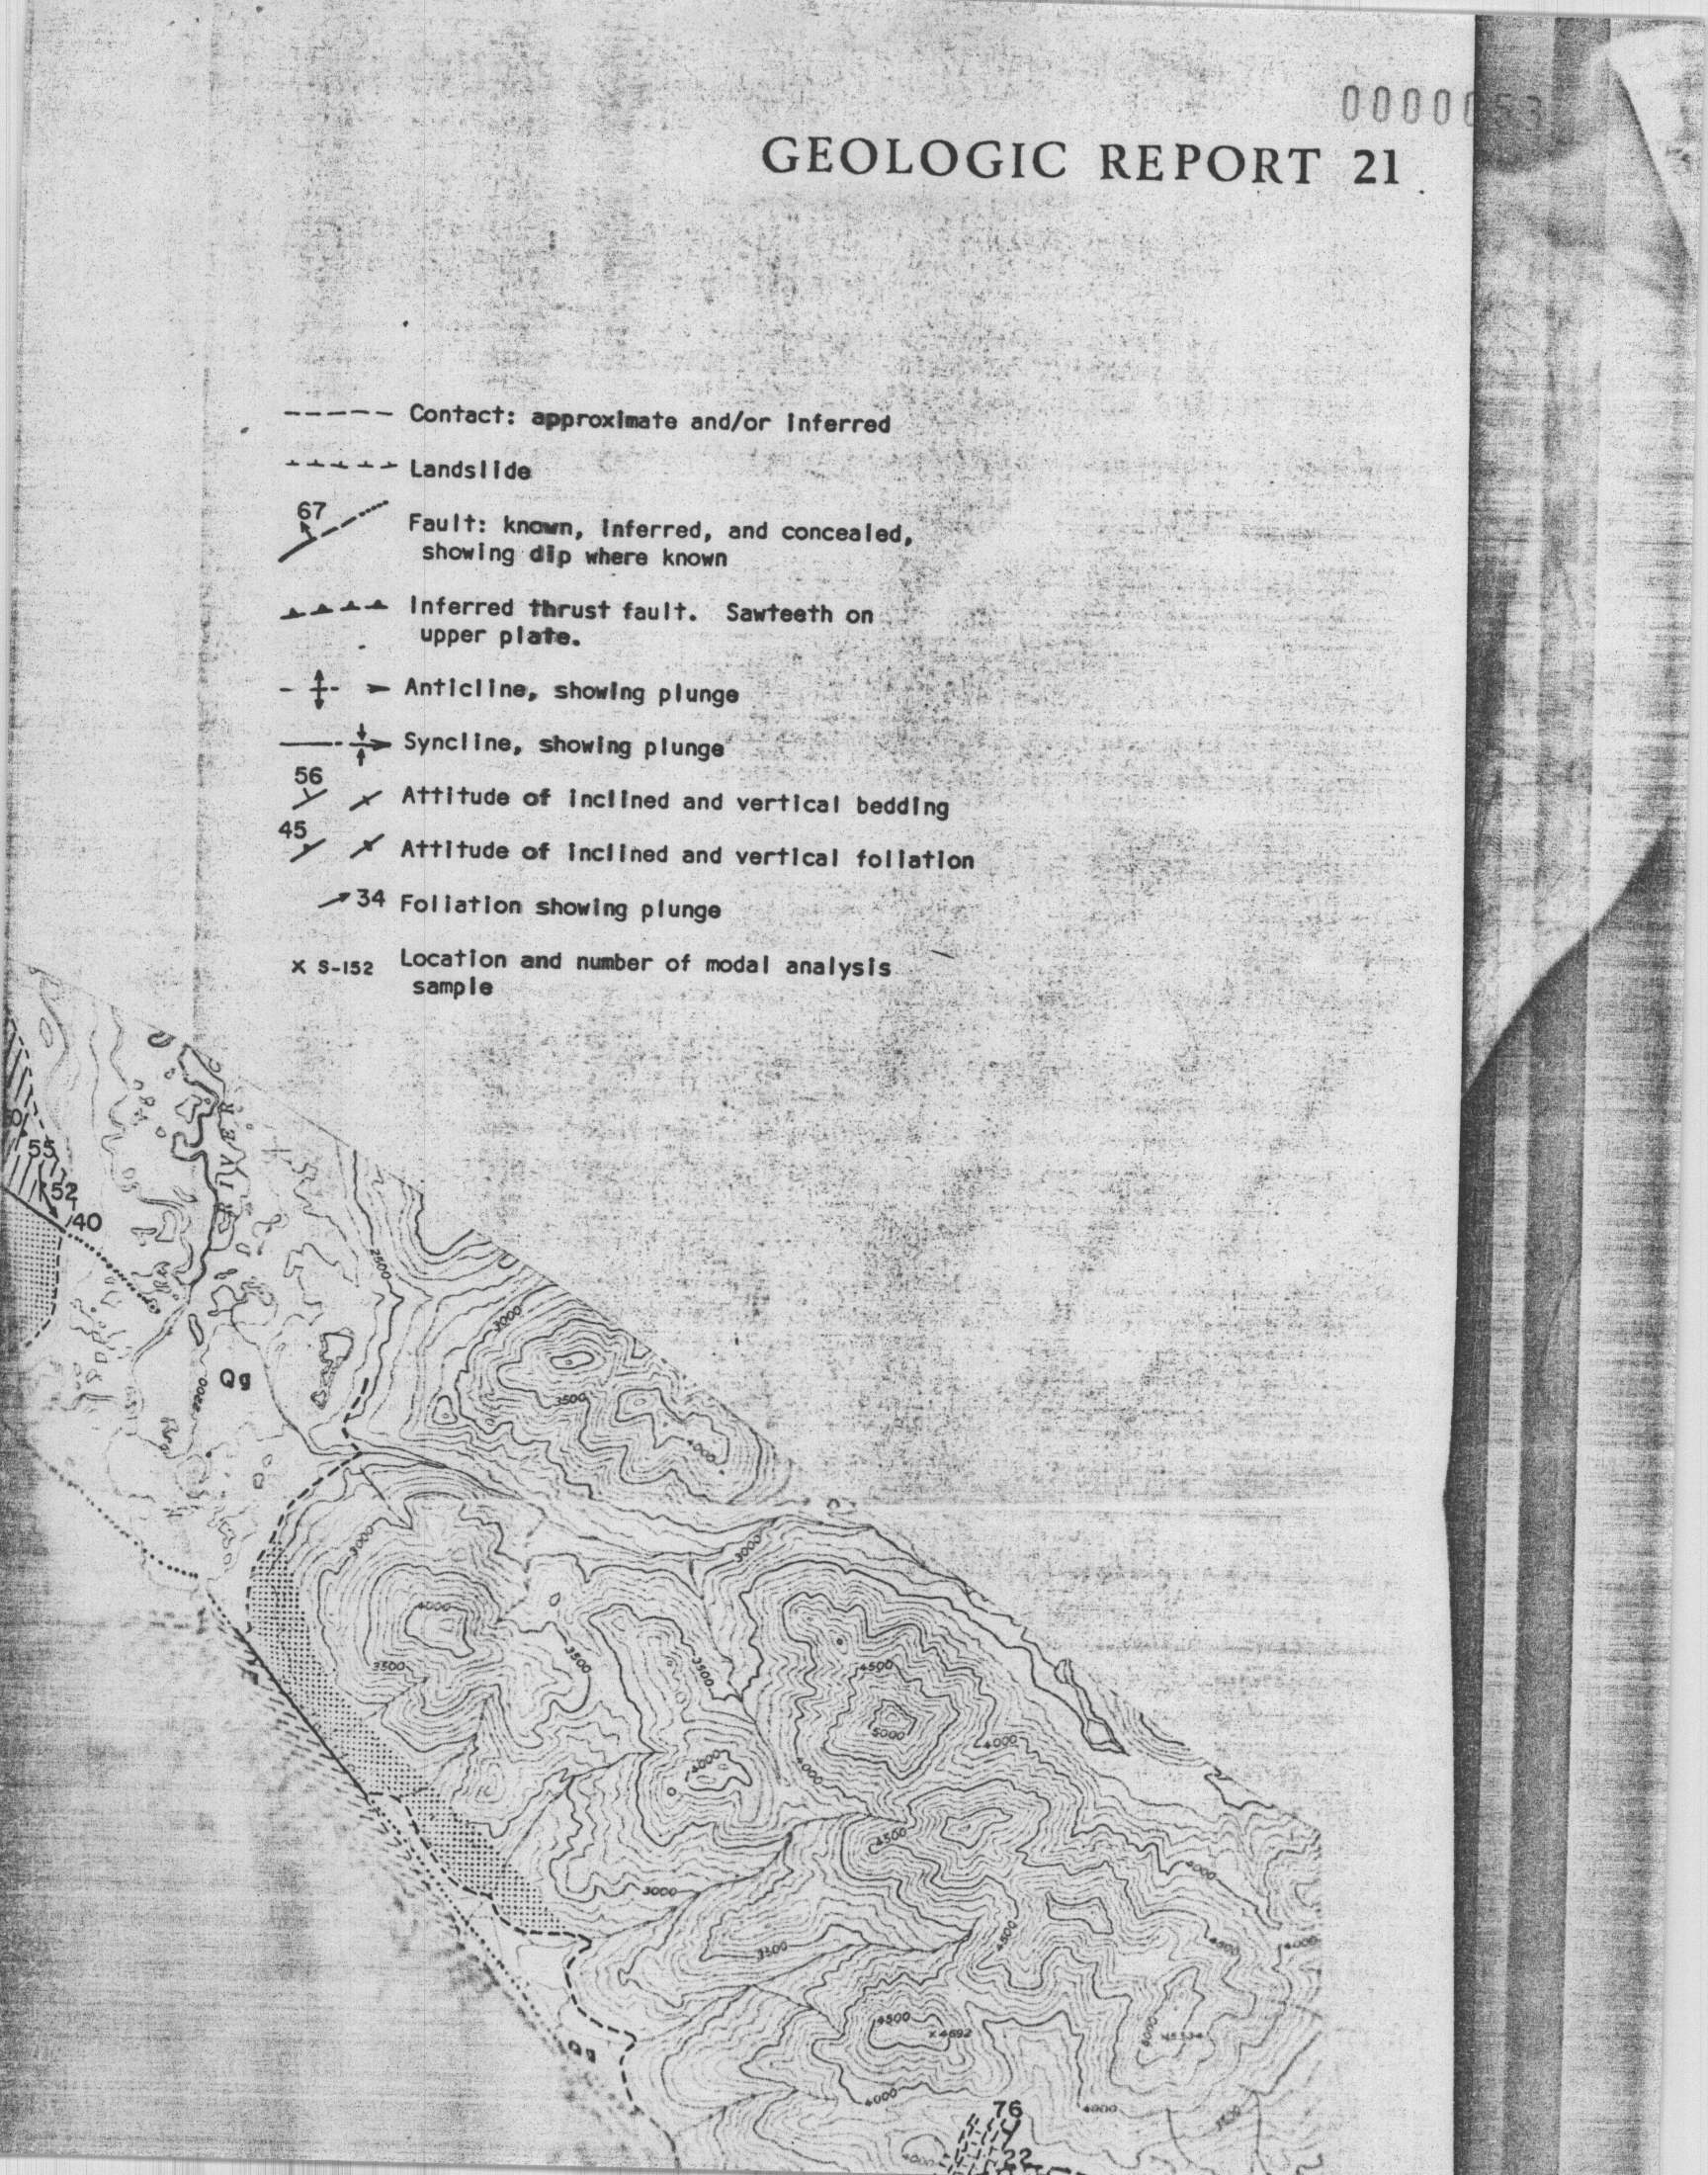 GEOLOGIC REPORT 21
Contact: approximate and/or inferred
Landslide
67
Fault: known, inferred, and concealed,
showing dip where known
Inferred thrust fault. Sawteeth on
upper plate.
Anticline, showing plunge
Syncline, showing plunge
56
Attitude of inclined and vertical bedding
45
Attitude of inclined and vertical foliation
34 Foliation showing plunge
x S-152 Location and number of modal analysis
sample
RIVER
55
52
40
2500
3000
Qg
2000
3500
4000
3000
3000
4000
3500
3500
3500
4500
5000
4000
4000
4000
4500
4000
3000
3500
4500
4500
4000
4500
x 4692
Qg
4000
4000
76
3500
4000
22